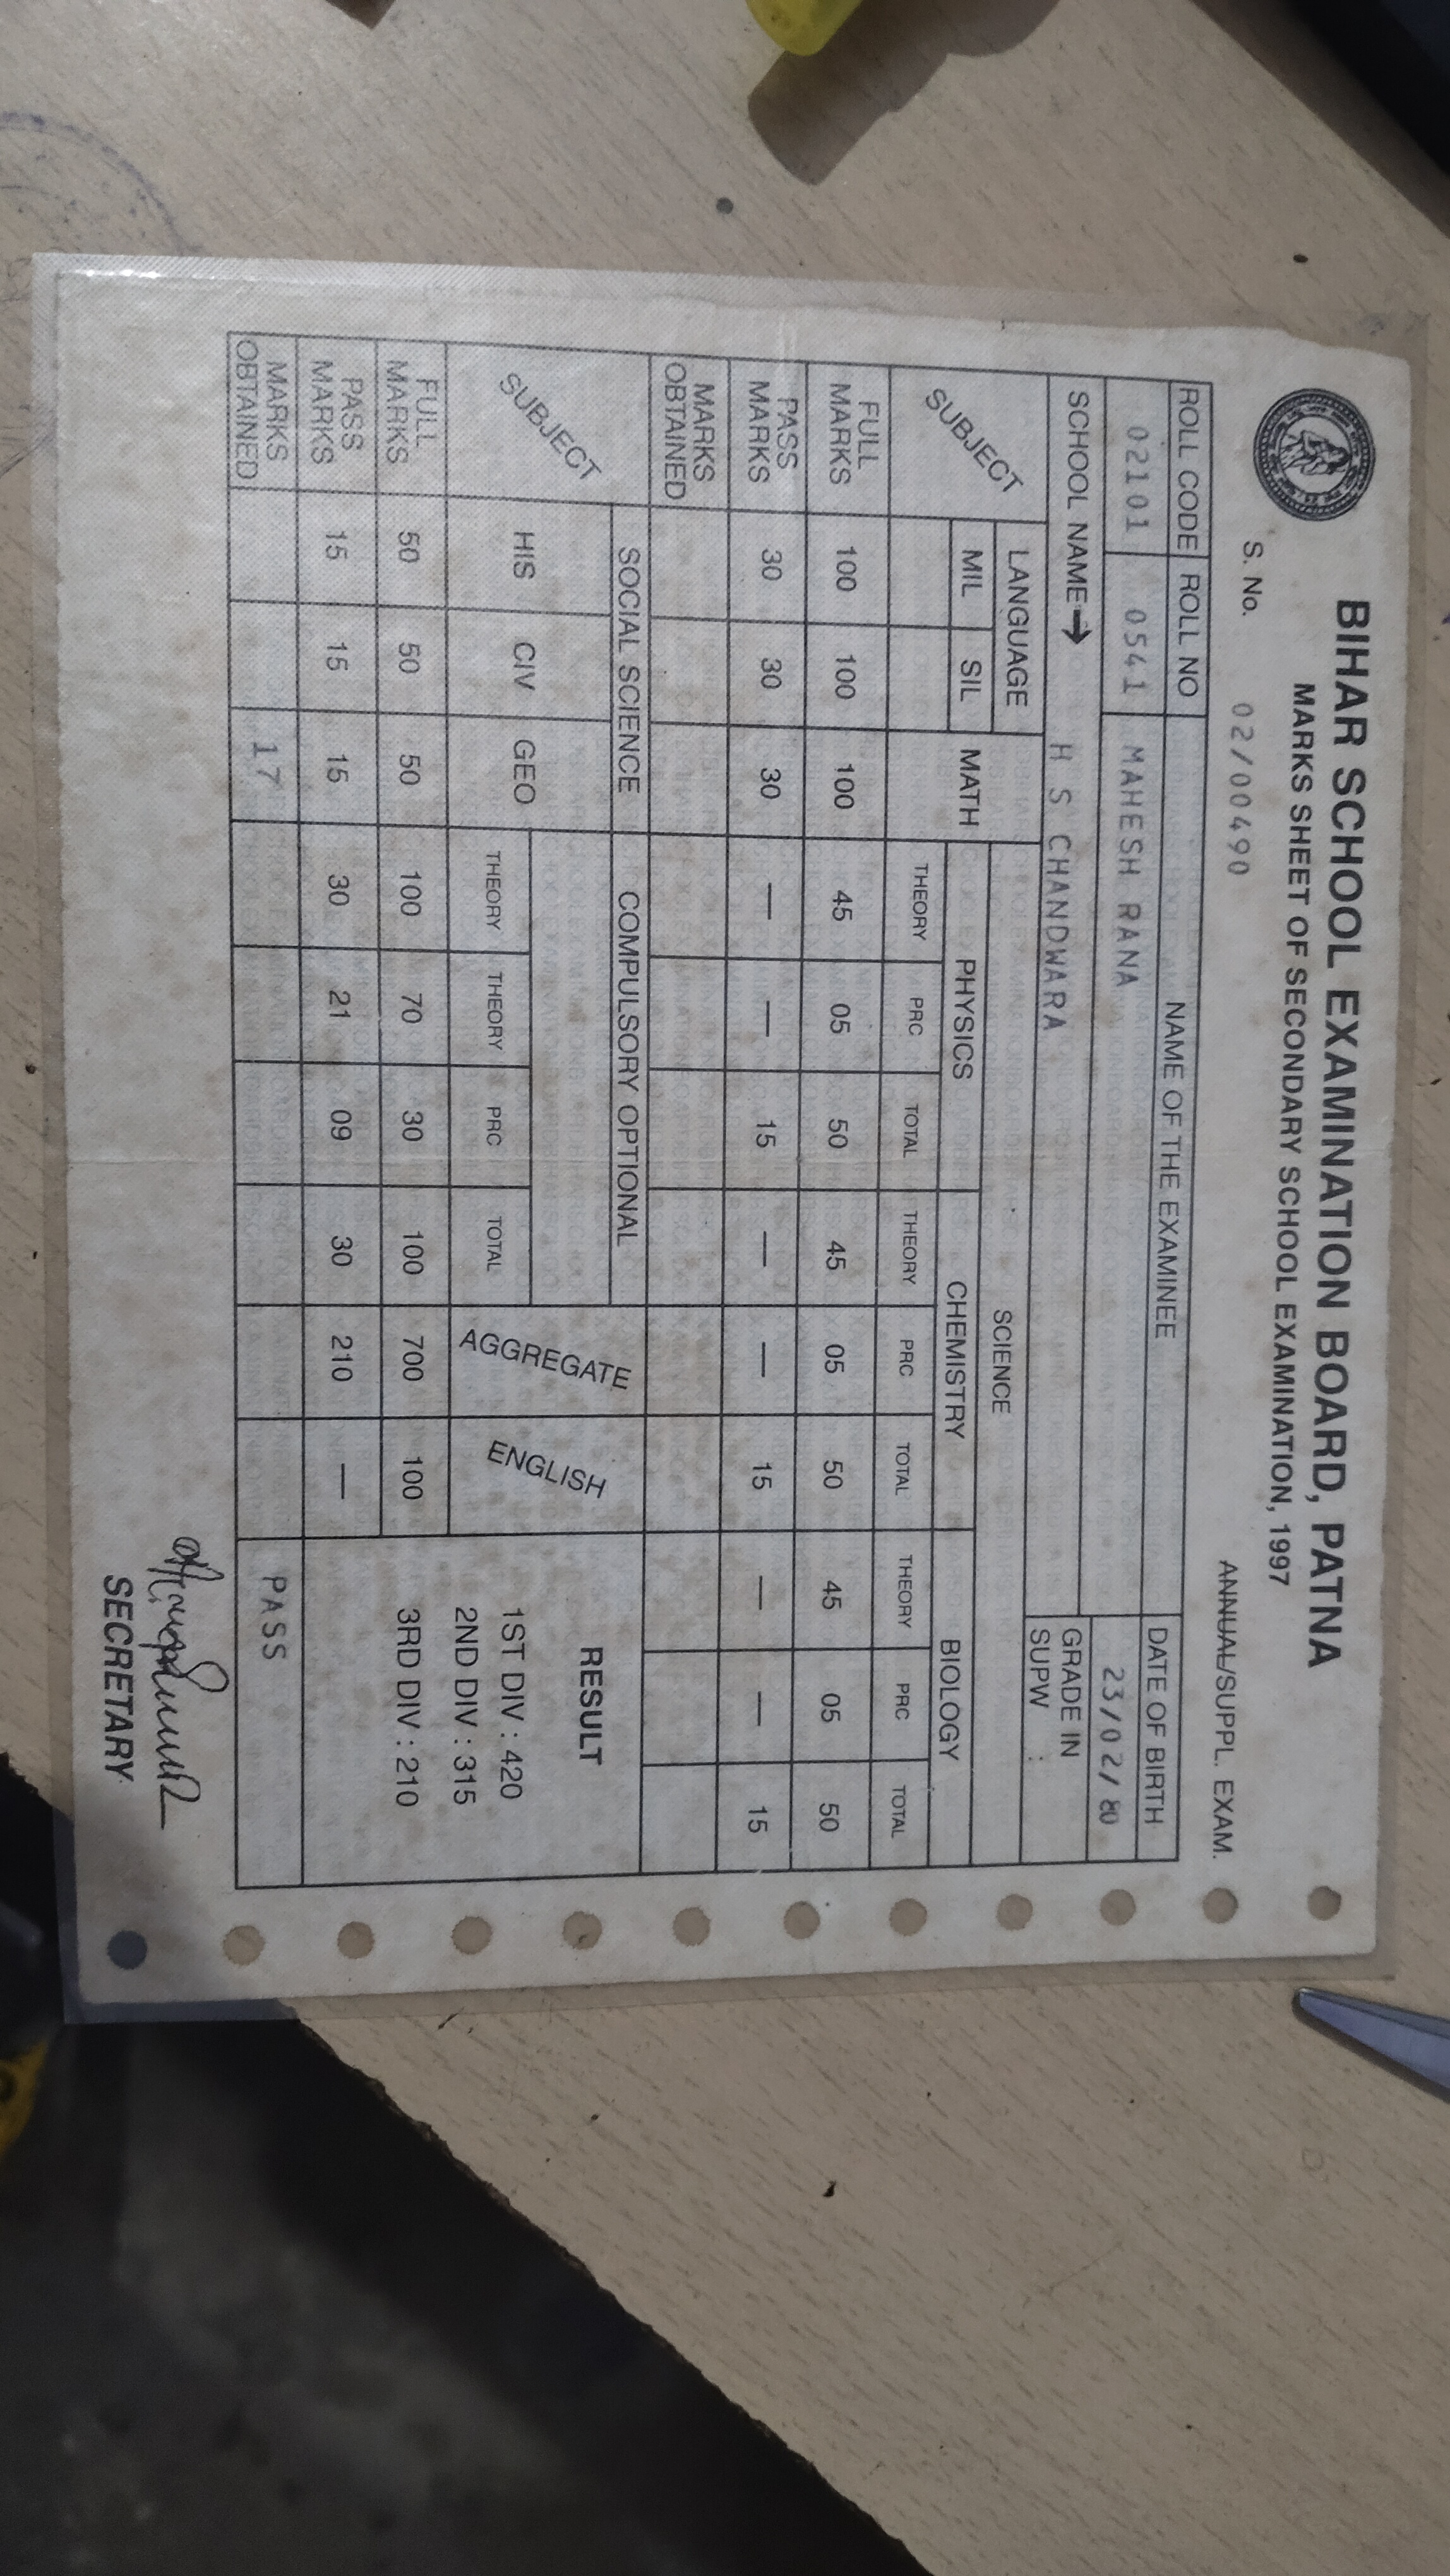 BIHAR SCHOOL EXAMINATION BOARD, PATNA
MARKS SHEET OF SECONDARY SCHOOL EXAMINATION, 1997
S. No. 02/00490 ANNUAL/SUPPL. EXAM.
ROLL CODE ROLL NO NAME OF THE EXAMINEE DATE OF BIRTH
02101 0541 MAHESH RANA 23/02/80
SCHOOL NAME → H S CHANDWARA GRADE IN SUPW :
SUBJECT LANGUAGE MATH SCIENCE
MIL SIL PHYSICS CHEMISTRY BIOLOGY
THEORY PRC TOTAL THEORY PRC TOTAL THEORY PRC TOTAL
FULL MARKS 100 100 100 45 05 50 45 05 50 45 05 50
PASS MARKS 30 30 30 — — 15 — — 15 — — 15
MARKS OBTAINED
SUBJECT SOCIAL SCIENCE COMPULSORY OPTIONAL AGGREGATE ENGLISH RESULT
HIS CIV GEO THEORY THEORY PRC TOTAL
1ST DIV : 420
2ND DIV : 315
FULL MARKS 50 50 50 100 70 30 100 700 100 3RD DIV : 210
PASS MARKS 15 15 15 30 21 09 30 210 —
MARKS OBTAINED 17 PASS
SECRETARY